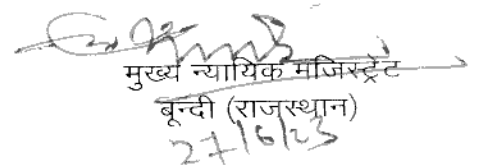 मुख्य न्यायिक मजिस्ट्रेट
बून्दी (राजस्थान)
27/6/23